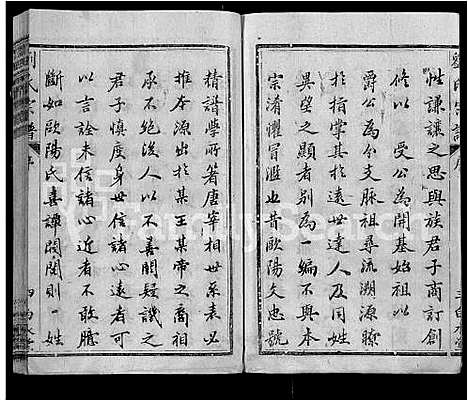 性謙讓之思與族君子商訂創
修以 受公為開基始祖以
爵公為分支脈祖尋流溯源瞭
於指掌其於遠世達人及同姓
異望之顯者別為一編不與本
宗淆懼冒濫也昔歐陽文忠號
精譜學所著唐宰相世系表必
推本源出於某王某帝之裔相
承不絕後人以不善闕疑譏之
君子慎度身世信諸心遠者可
以言詮未信諸心近者不敢臆
斷如歐陽氏喜譚閥閱則一姓
劉氏宗譜 序
FamilySearch